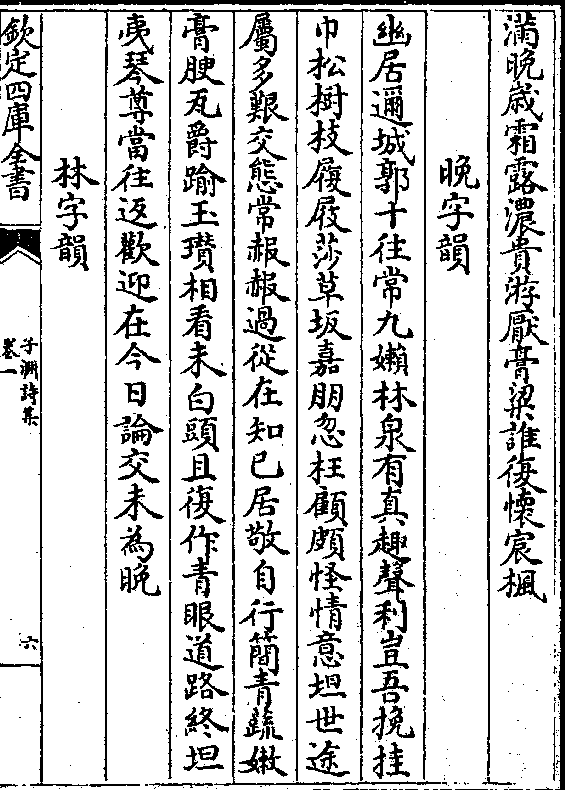 滿晩歳霜露濃貴游厭膏粱誰復懷宸楓
晚字韻
幽居邇城郭十往常九嬾林泉有真趣聲利豈吾挽挂
巾松樹枝履屐莎草坂嘉朋忽枉顧頗怪情意坦世途
屬多艱交態常赧赧過從在知已居敬自行簡青蔬嫩
膏腴瓦爵踰玉瓚相看未白頭且復作青眼道路終坦
夷琴尊當往返歡迎在今日論交未為晚
林字韻
欽定四庫全書
子淵詩集
卷一
六